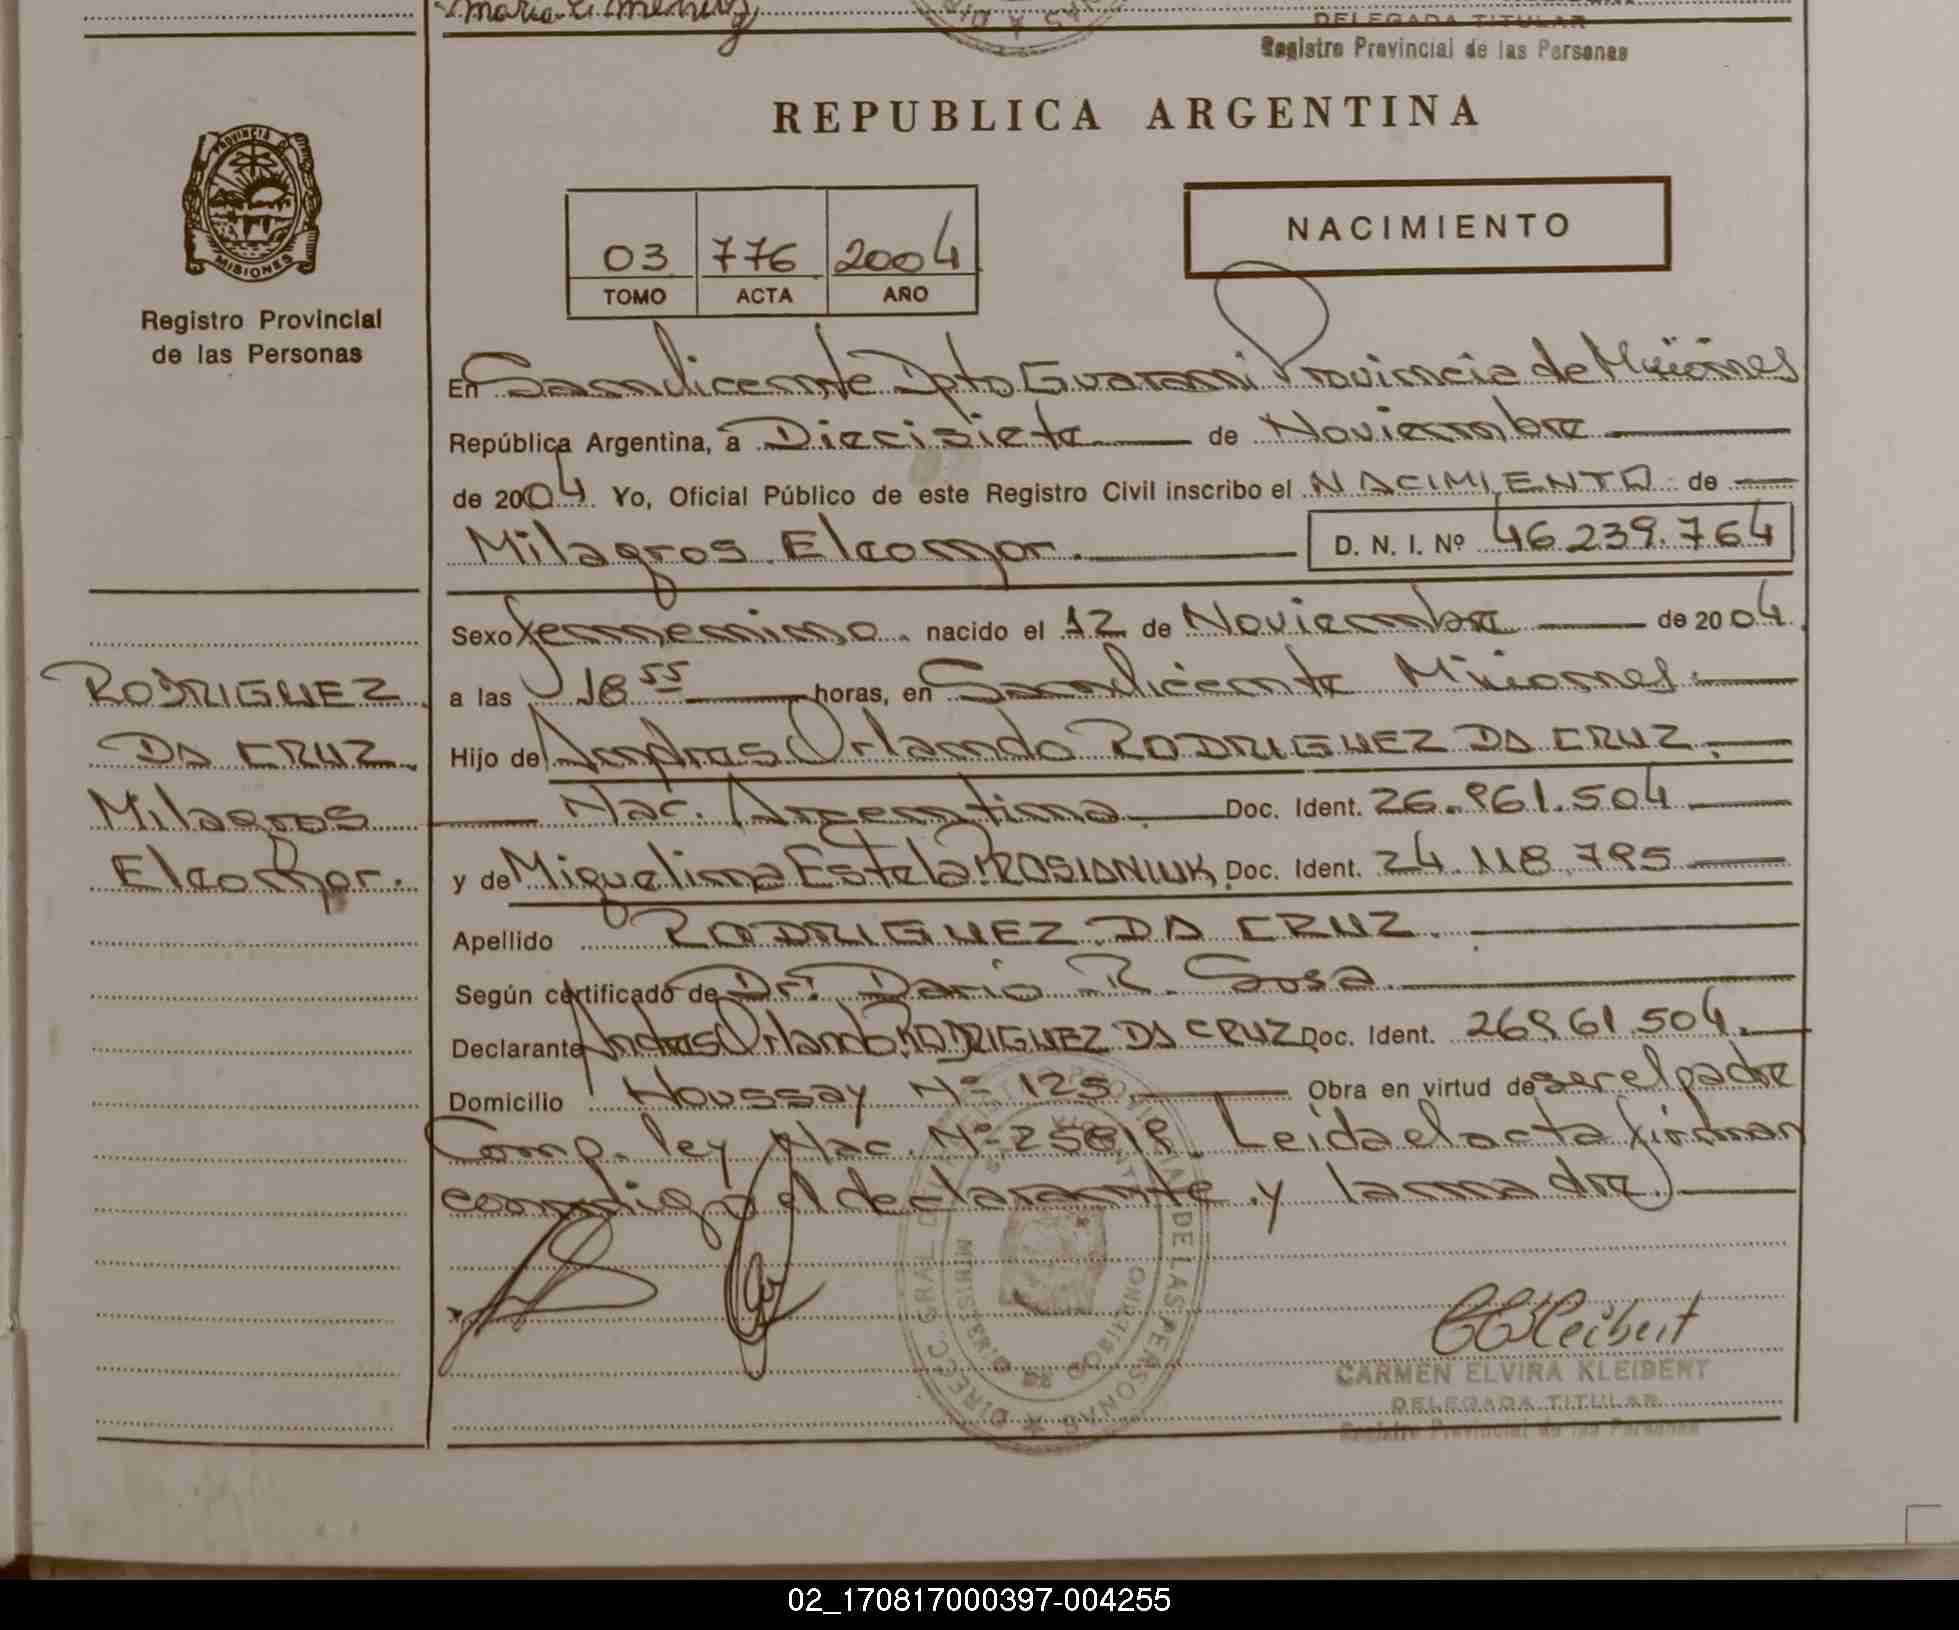 Maria
DELEGADA TITULAR
Registro Provincial de las Personas
REPUBLICA ARGENTINA
PROVINCIA DE
MISIONES
Registro Provincial
de las Personas
03 776 2004
TOMO ACTA AÑO
NACIMIENTO
En San Vicente Dpto Guarani Provincia de Misiones
República Argentina, a Diecisiete de Noviembre
de 2004. Yo, Oficial Público de este Registro Civil inscribo el NACIMIENTO de
Milagros D. N. I. Nº 46.239.764
Sexo femenino. nacido el 12 de Noviembre de 2004.
a las 18 55 horas, en San Vicente Misiones
Hijo de Orlando RODRIGUEZ DA CRUZ.
Nac. Argentina. Doc. Ident. 26.961.504
y de Miguelina Estela PROSIANIUK Doc. Ident. 24.118.795
Apellido RODRIGUEZ DA CRUZ.
Según certificado de Dr. Dario R. Sosa
Declarante Orlando RODRIGUEZ DA CRUZ Doc. Ident. 26961.504.
Domicilio Houssay Nº 125. Obra en virtud de ser el padre
Comp. ley Nac. Nº 25818. Leida el acta firman
conmigo el declarante y la madre.
RODRIGUEZ
DA CRUZ.
Milagros
CARMEN ELVIRA KLEIBERT
DELEGADA TITULAR
Registro Provincial de las Personas
02_170817000397-004255